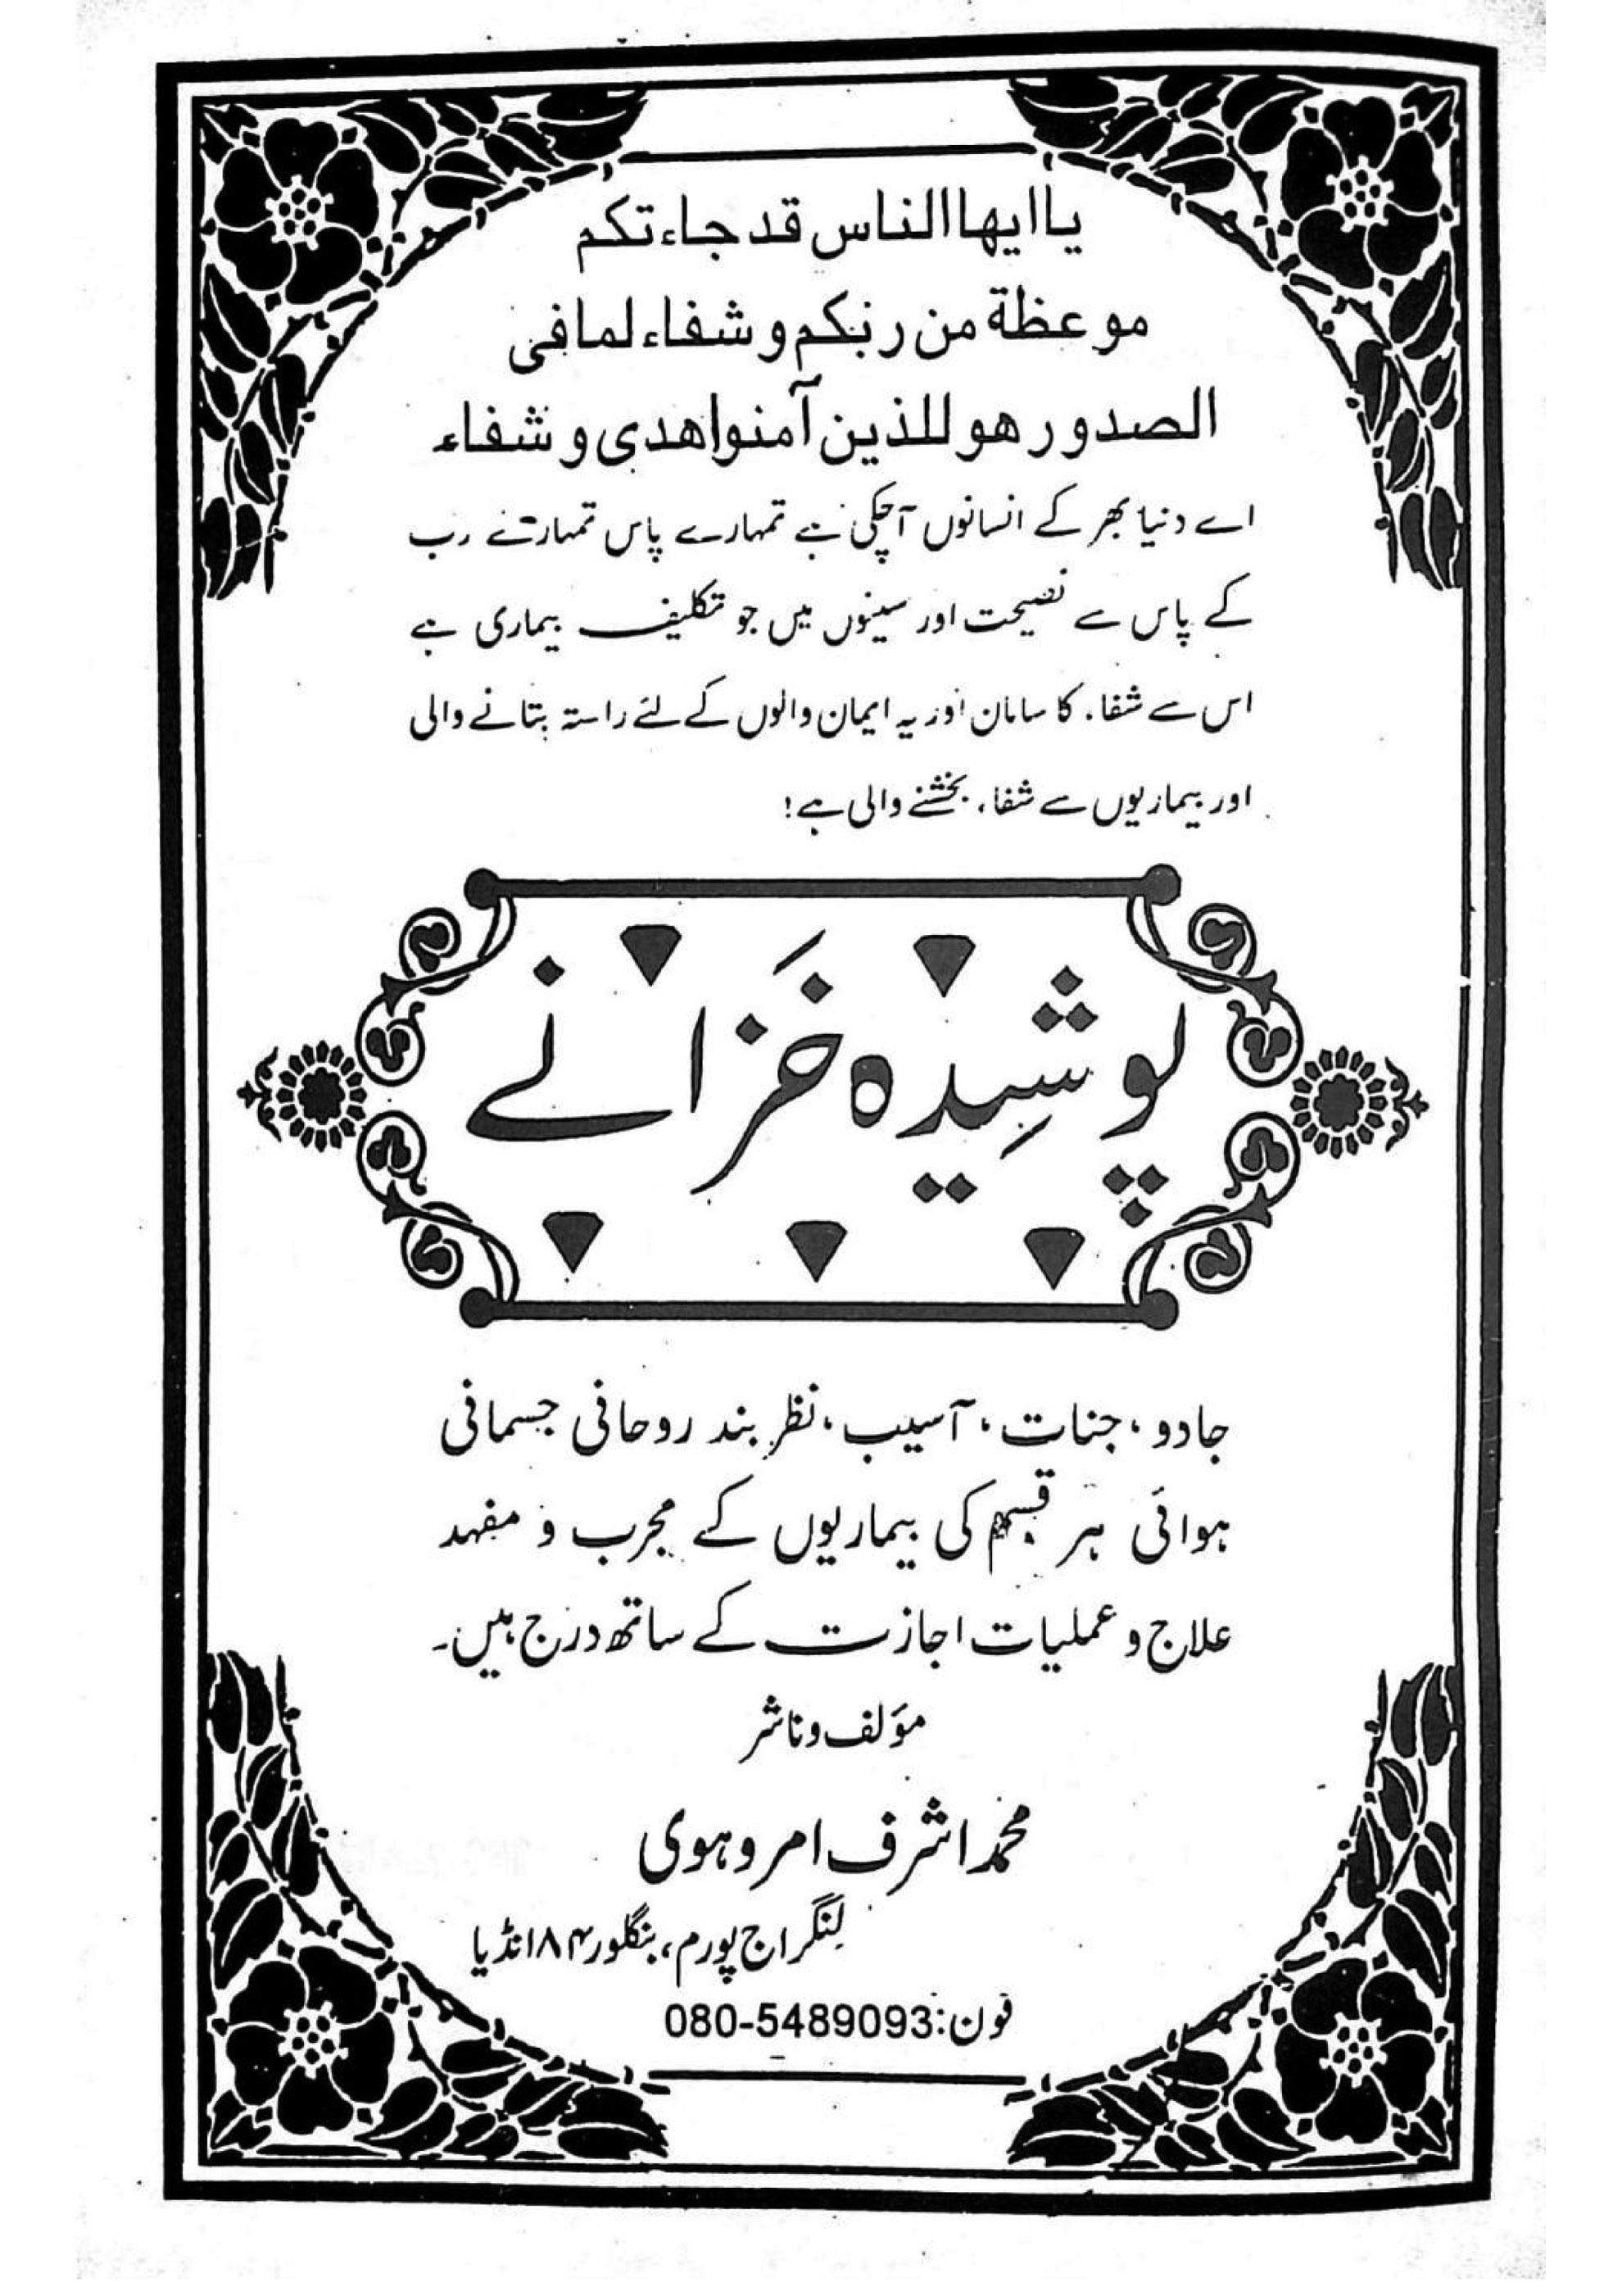 یاایهاالناس قد جاءتکم
موعظة من ربکم و شفاء لمافی
الصدور هو للذین آمنوا هدی و شفاء
اے دنیا بھر کے انسانوں آچکی ہے تمہارے پاس تمہارے رب
کے پاس سے نصیحت اور سینوں میں جو تکلیف بیماری ہے
اس سے شفاء کا سامان اور یہ ایمان والوں کے لئے راستہ بتانے والی
اور بیماریوں سے شفاء بخشنے والی ہے!
پوشِیدہ خَزانے
جادو، جنات، آسیب، نظر بند روحانی جسمانی
ہوائی ہر قسم کی بیماریوں کے مجرب و مفہد
علاج و عملیات اجازت کے ساتھ درج ہیں۔
مؤلف و ناشر
محمد اشرف امروہوی
لنگراج پورم، بنگلور ۸۴ انڈیا
فون:080-5489093